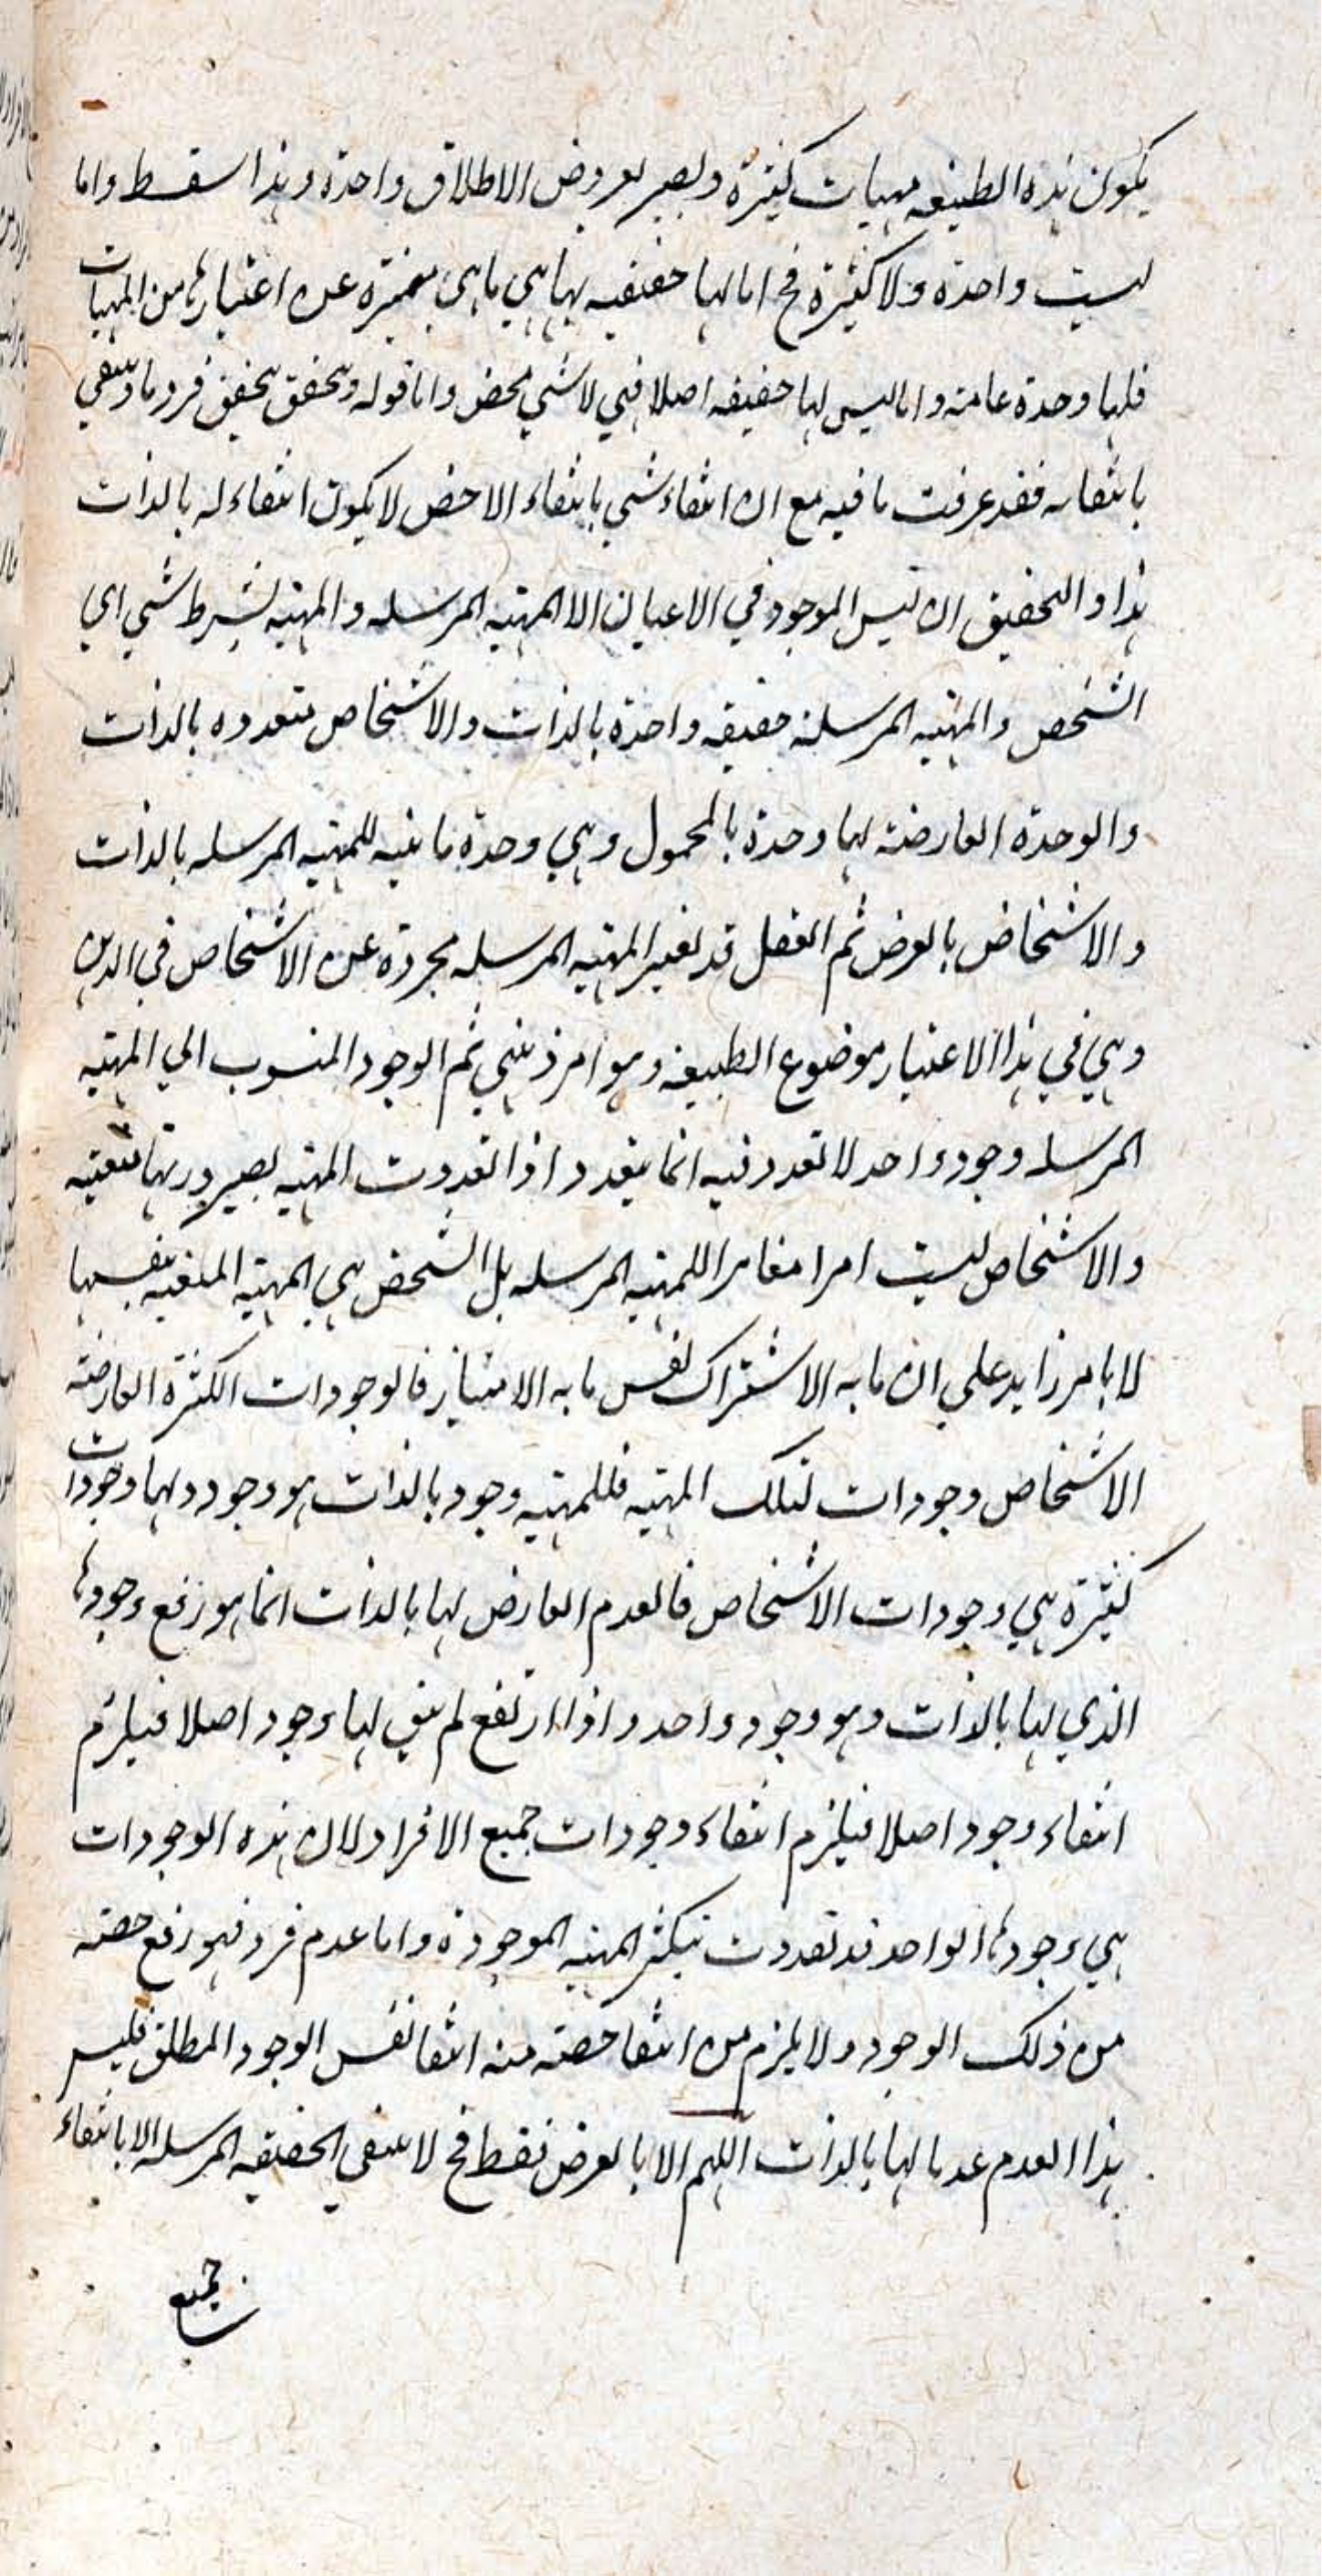 يكون هذه الطبيعه مهيات كثيرة ويصير بعروض الاطلاق واحدة وهذا سقط واما
ليست واحدة ولا كثيرة فح اما لها حقيقيه بها هي ما هي متميزه عن اعتبارها من المهيات
فلها وحدة عامة واما ليس لها حقيقه اصلا فهي لا شي محض واما قوله وتحقق بتحقق فرد ما وينتفي
بانتفائه فقد عرفت ما فيه مع ان انتفاء شي بانتفاء الاخص لا يكون انتفاء له بالذات
هذا والتحقيق ان ليس الموجود في الاعيان الا المهيه المرسله والمهيه بشرط شي اي
الشخص والمهيه المرسلة حقيقه واحدة بالذات والاشخاص متعدده بالذات
والوحدة العارضة لها وحدة بالمحمول وهي وحدة ثابتيه للمهيه المرسله بالذات
والاشخاص بالعرض ثم العقل قد يعتبر المهيه المرسله مجردة عن الاشخاص في الذهن
وهي في هذا الاعتبار موضوع الطبيعة وهو امر ذهني ثم الوجود المنسوب الي المهيه
المرسله وجود واحد لا تعدد فيه انما يتعدد اذا تعددت المهيه بصيرورتها متعينه
والاشخاص ليست امرا مغايرا للمهيه المرسله بل الشخص هي المهيه المتعينه بنفسها
لا بامر زايد علي ان ما به الاشتراك نفس ما به الامتياز فالوجودات الكثرة العارضة
الاشخاص وجودات لتلك المهيه فللمهيه وجود بالذات هو وجود ولها وجودات
كثيرة هي وجودات الاشخاص فالعدم العارض لها بالذات انما هو رفع وجودها
الذي لها بالذات وهو وجود واحد واذا ارتفع لم يبق لها وجود اصلا فيلزم
انتفاء وجود اصلا فيلزم انتفاء وجودات جميع الافراد لان هذه الوجودات
هي وجودها الواحد قد تعددت بتكثر المهيه الموجودة واما عدم فرد فهو رفع حصته
من ذلك الوجود ولا يلزم من انتفا حصته منه انتفا نفس الوجود المطلق فليس
هذا العدم عدما لها بالذات اللهم الا بالعرض فقط فح لا ينتفي الحقيقه المرسله الا بانتفاء
جميع